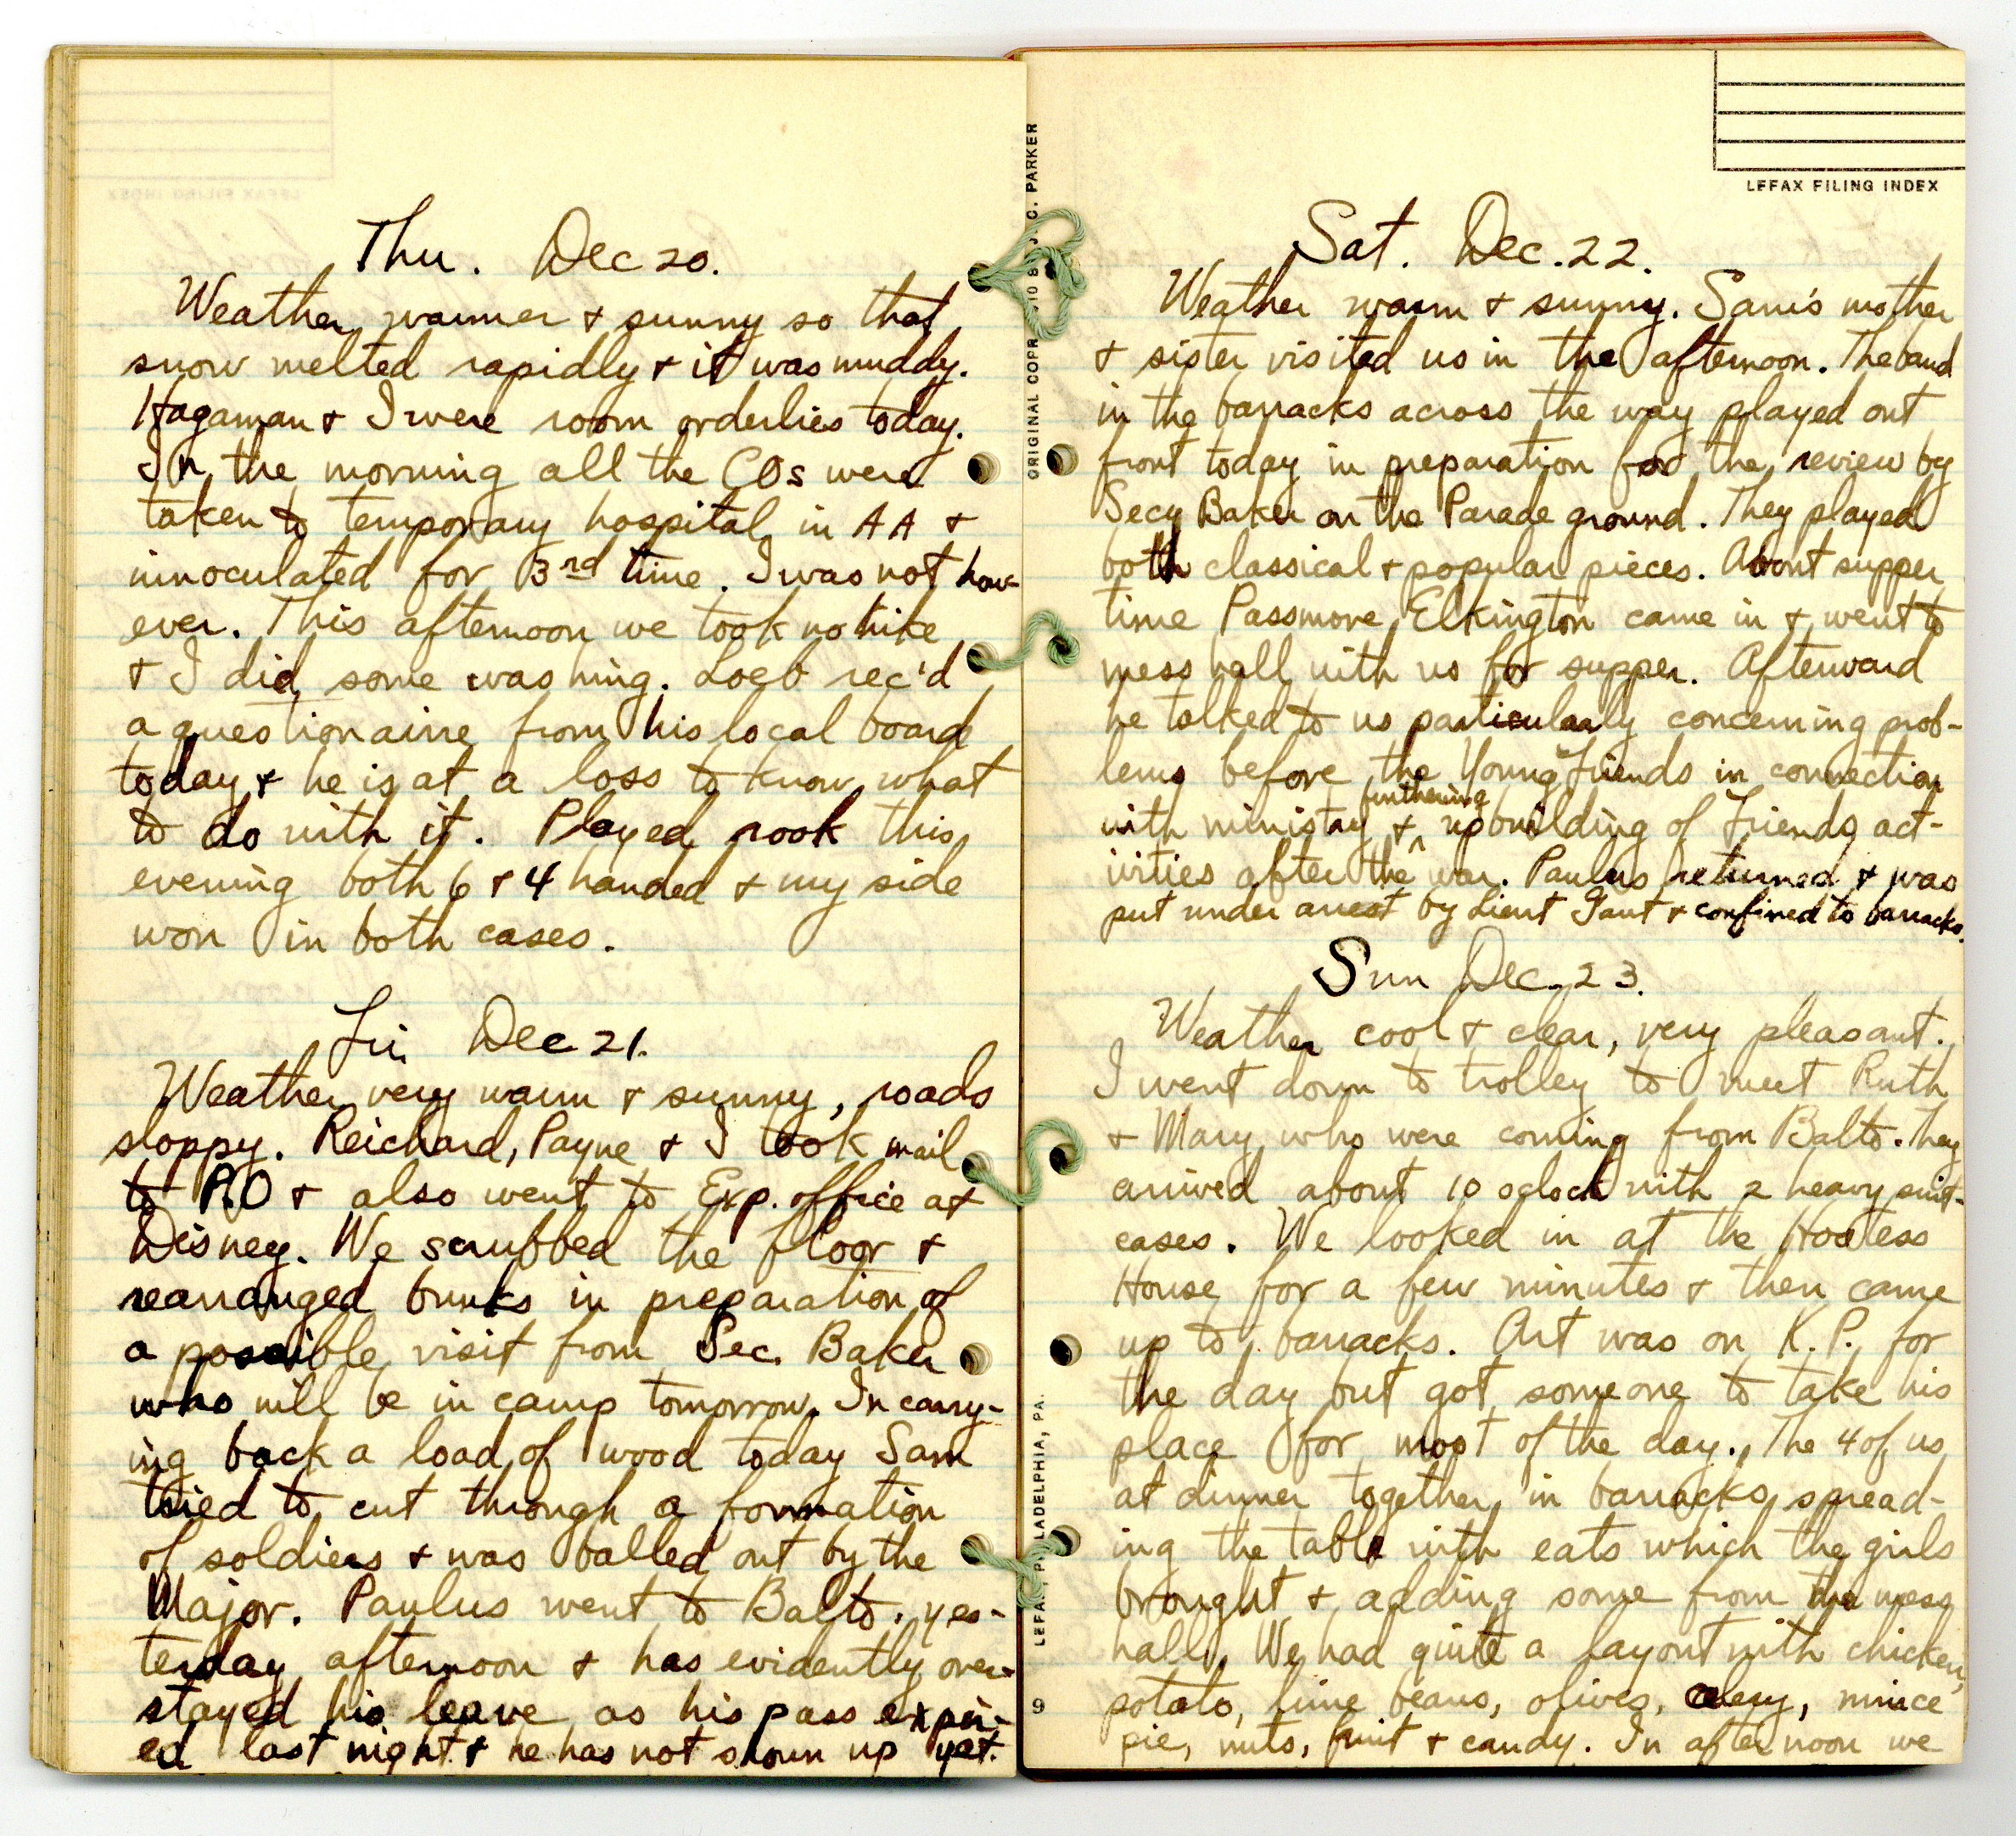 Thu. Dec 20.
Weather warmer + sunny so that
snow melted rapidly + it was muddy.
Hagaman + I were room orderlies today.
In the morning all the COs were
taken to temporary hospital in AA +
innoculated for 3rd time. I was not how-
ever. This afternoon we took no hike
+ I did some washing. Loeb rec'd
a questionaire from his local board
today + he is at a loss to know what
to do with it. Played rook this
evening both 6 + 4 handed + my side
won in both cases.
Fri Dec 21.
Weather very warm + sunny, roads
sloppy. Reichard, Payne + I took mail
to P.O + also went to Exp. office at
Disney. We scrubbed the floor +
rearranged bunks in preparation of
a possible visit from Sec. Baker
who will be in camp tomorrow. In carry-
ing back a load of wood today Sam
tried to cut through a formation
of soldiers + was balled out by the
Major. Paulus went to Balto. yes-
terday afternoon + has evidently over-
stayed his leave as his pass expir-
ed last night + he has not shown up yet.
ORIGINAL COPR. 1910 BY J. C. PARKER
LEFAX, PHILADELPHIA, PA.
9
LEFAX FILING INDEX
Sat. Dec. 22.
Weather warm + sunny. Sam's mother
+ sister visited us in the afternoon. The band
in the barracks across the way played out
front today in preparation for the review by
Secy Baker on the Parade ground. They played
both classical + popular pieces. About supper
time Passmore Elkington came in + went to
mess hall with us for supper. Afterward
he talked to us particularly concerning prob-
lems before the Young Friends in connection
with ministry + furthering upbuilding of Friends act-
ivities after the war. Paulus returned + was
put under arrest by Lieut Gaut + confined to barracks.
Sun Dec. 23.
Weather cool + clear, very pleasant.
I went down to trolley to meet Ruth
+ Mary who were coming from Balto. They
arrived about 10 oclock with 2 heavy suit-
cases. We looked in at the Hostess
House for a few minutes + then came
up to barracks. Art was on K.P. for
the day but got someone to take his
place for most of the day. The 4 of us
at dinner together in barracks, spread-
ing the table with eats which the girls
brought + adding some from the mess
hall. We had quite a layout with chicken,
potato, lime beans, olives, celery, mince
pie, nuts, fruit + candy. In afternoon we